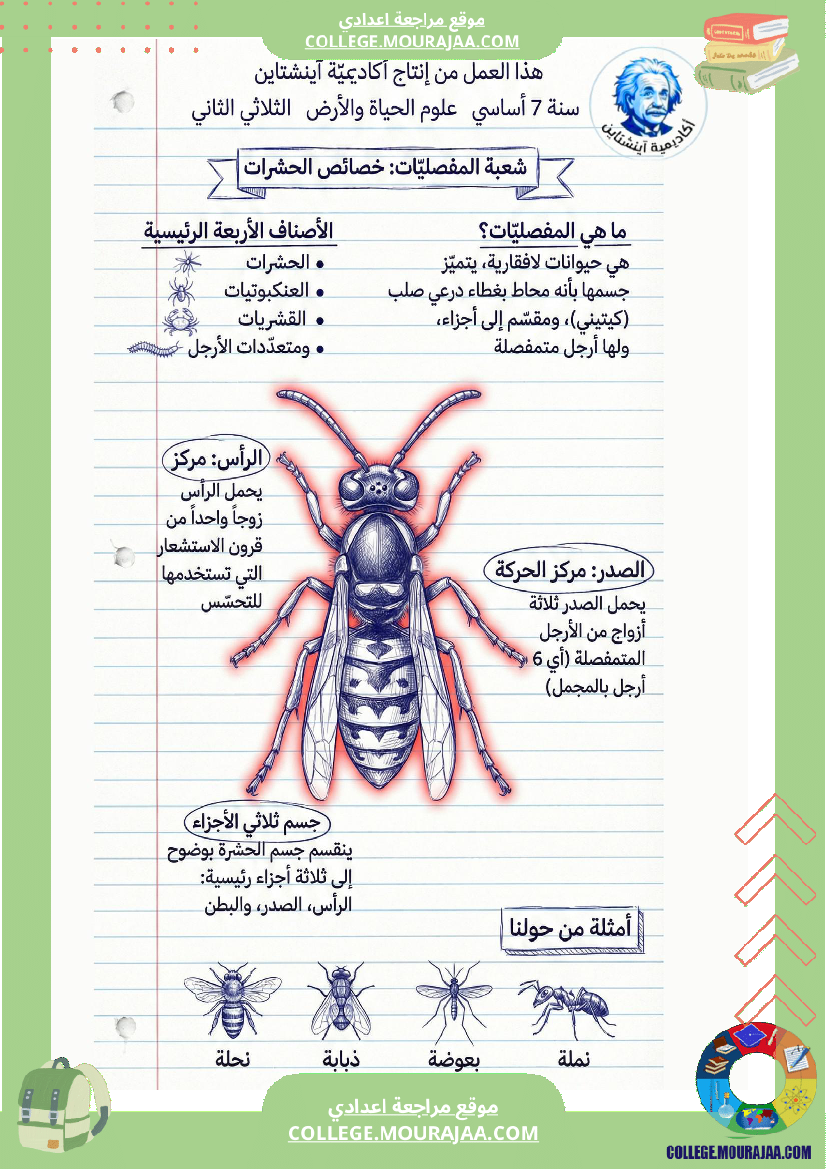 موقع مراجعة اعدادي
COLLEGE.MOURAJAA.COM
هذا العمل من إنتاج أكاديميّة آينشتاين
سنة 7 أساسي علوم الحياة والأرض الثلاثي الثاني
أكاديمية آينشتاين
شعبة المفصليّات: خصائص الحشرات
ما هي المفصليّات؟
هي حيوانات لافقارية، يتميّز
جسمها بأنه محاط بغطاء درعي صلب
(كيتيني)، ومقسّم إلى أجزاء،
ولها أرجل متمفصلة
الأصناف الأربعة الرئيسية
• الحشرات
• العنكبوتيات
• القشريات
• ومتعدّدات الأرجل
الرأس: مركز
يحمل الرأس
زوجاً واحداً من
قرون الاستشعار
التي تستخدمها
للتحسّس
الصدر: مركز الحركة
يحمل الصدر ثلاثة
أزواج من الأرجل
المتمفصلة (أي 6
أرجل بالمجمل)
جسم ثلاثي الأجزاء
ينقسم جسم الحشرة بوضوح
إلى ثلاثة أجزاء رئيسية:
الرأس، الصدر، والبطن
أمثلة من حولنا
نملة
بعوضة
ذبابة
نحلة
موقع مراجعة اعدادي
COLLEGE.MOURAJAA.COM
COLLEGE.MOURAJAA.COM